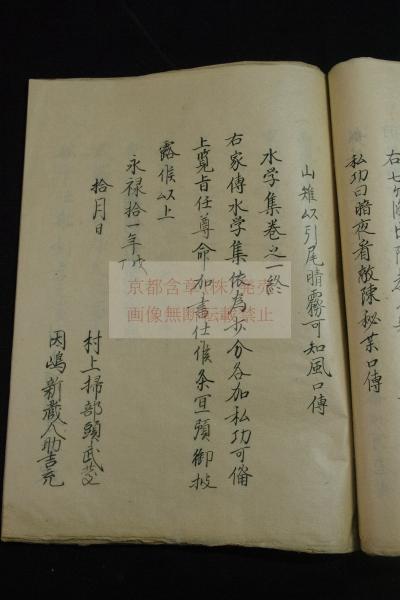 私功曰暗夜看敵陳秘某口傳
山雉以引尾晴霧可知風口傳
水学集巻之一終
右家傳水学集依為歩分各加私功可備
上覧旨任尊命加書仕候条宜預御披
露候以上
永禄拾一年戊
拾月日
村上掃部頭武
因嶋新蔵人助吉充
京都含章(株)発売
画像無断転載禁止